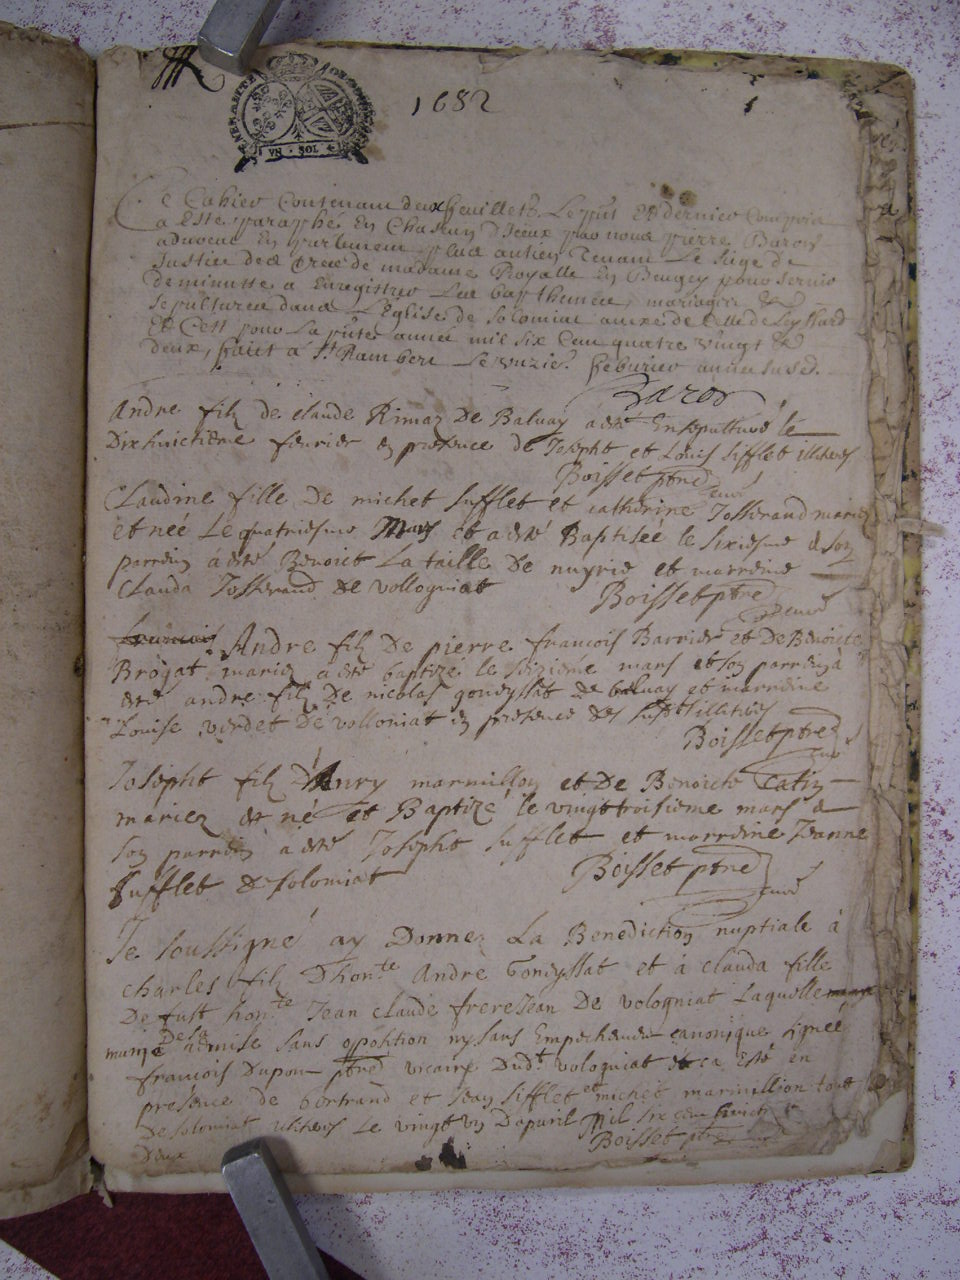 GENERALITE DE BOURGOGNE
VN · SOL
1682
1
Ce Cahier Contenant deux feuillets Le pnt Et dernier Compris
a Esté paraphé En Chascun D'Iceux par nous pierre Baron
aduocat En parlement plus antien Tenant Le Siege de
Justice des Terres de madame Royalle En Beugey pour servir
de minutte a Enregistrer Les bapthemes, mariages &
Sepultures dans L'Eglise de Solomiat annexe de Celle de Leyssard
Et C'est pour La pnte année mil six Cent quatre vingt &
deux, faict a St Rambert Le unzie. febvrier an susd.
Baron
Andre filz de claude Rimaz De Baluay a esté Ensepulturé le
Dixhuictieme feurier en presence de Josepht et Louis Sifflet illiteres
Boisset ptre
curé
Claudine fille De michet Sufflet et catherine Josserand mariez
et neé Le quatriesme Mars et a esté Baptiseé le sixiesme & son
parrein á esté Benoict La taille De nuyrie et marreine
Clauda Josserand de vollogniat
Boisset ptre
curé
Andre filz De pierre francois Barrier et De Benoicte
Brogat mariez a esté baptizé le seizieme mars et son parrein á
esté andre filz De nicolas goueyssat de baluay et marreine
Louise verdet De volloniat en presence des susd illiteres
Boisset ptre
curé
Josepht filz D'Anry marmillon et De Benoicte Catin
mariez est né et Baptizé le vingt troisieme mars &
son parrein a esté Josepht Sufflet et marreine Jeanne
Sufflet de solomiat
Boisset ptre
curé
Je soussigné ay Donnez La Benediction nuptiale á
charles filz D'honte Andre Goueyssat et á clauda fille
De fust honte Jean claude frereJean De vologniat Laquelle
munie De sa remise sans opposition ny sans Empechement canonique signeé
francois Dupon ptre vicaire Dudt vologniat & ca Esté en
presence de bertrand et Jean Sifflet et michet marmillion tout
De solomiat illiteres Le vingt un D'apuril Mil six cent huict
Deux
Boisset ptre